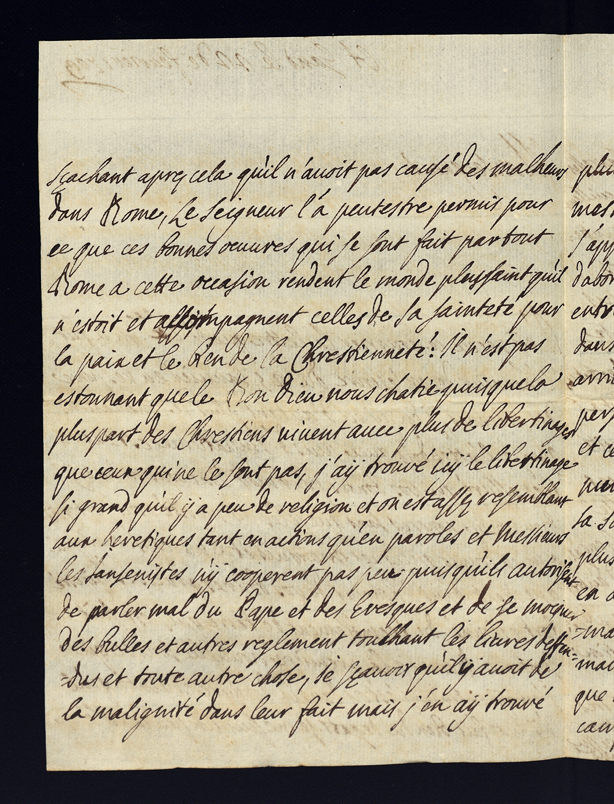 sçachant apres cela qu'il n'avoit pas causé des malheurs
dans Rome, Le Seigneur l'a peutestre permis pour
ce que ces bonnes oeuvres qui se sont fait par tout
Rome a cette occasion rendent le monde plus saint qu'il
n'estoit et accompagnent celles de sa sainteté pour
la paix et le bien de la Chrestienneté: Il n'est pas
estonnant que le Bon Dieu nous chatie puisque la
pluspart des Chrestiens vivent avec plus de libertinage
que ceux qui ne le sont pas, j'aÿ trouvé icy le libertinage
si grand qu'il ÿ a peu de religion et on est assez resemblant
aux heretiques tant en actions qu'en paroles et Messieurs
les Jansenistes n'ÿ cooperent pas peu puisqu'ils autorisent
de parler mal du Pape et des Evesques et de se moquer
des bulles et autres reglement touchant les livres deffen-
-dus et toute autre chose, je sçavois qu'il ÿ avoit de
la malignité dans leur fait mais j'en aÿ trouvé
plus
mes
d'abor
entr
dans
arri
per
et ce
sa
plus
en
que